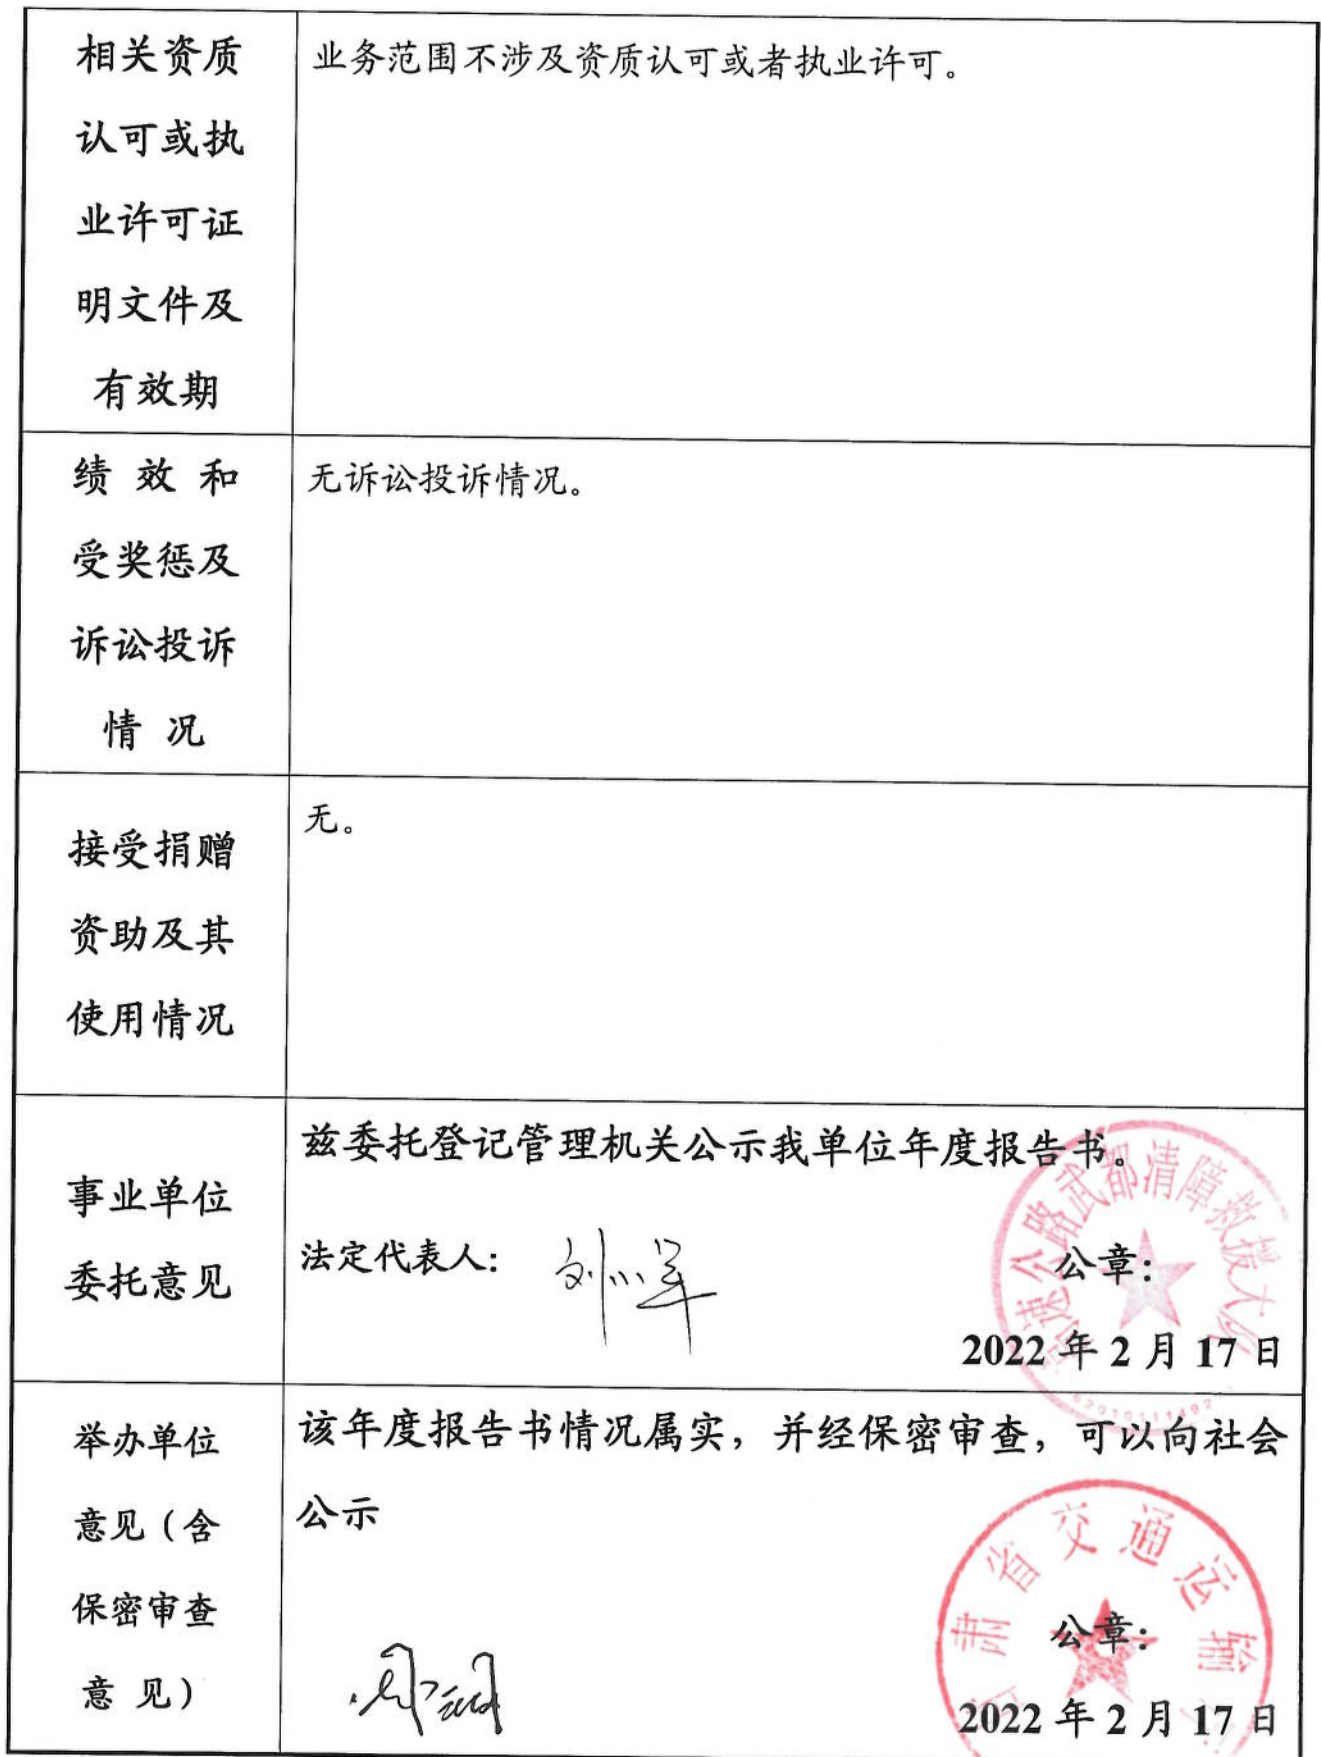 相关资质
认可或执
业许可证
明文件及
有效期
业务范围不涉及资质认可或者执业许可。
绩 效 和
受奖惩及
诉讼投诉
情 况
无诉讼投诉情况。
接受捐赠
资助及其
使用情况
无。
事业单位
委托意见
兹委托登记管理机关公示我单位年度报告书。
法定代表人：
公章：
2022 年 2 月 17 日
速公路武都清障救援大队
举办单位
意见（含
保密审查
意 见）
该年度报告书情况属实，并经保密审查，可以向社会
公示
公章：
2022 年 2 月 17 日
肃省交通运输